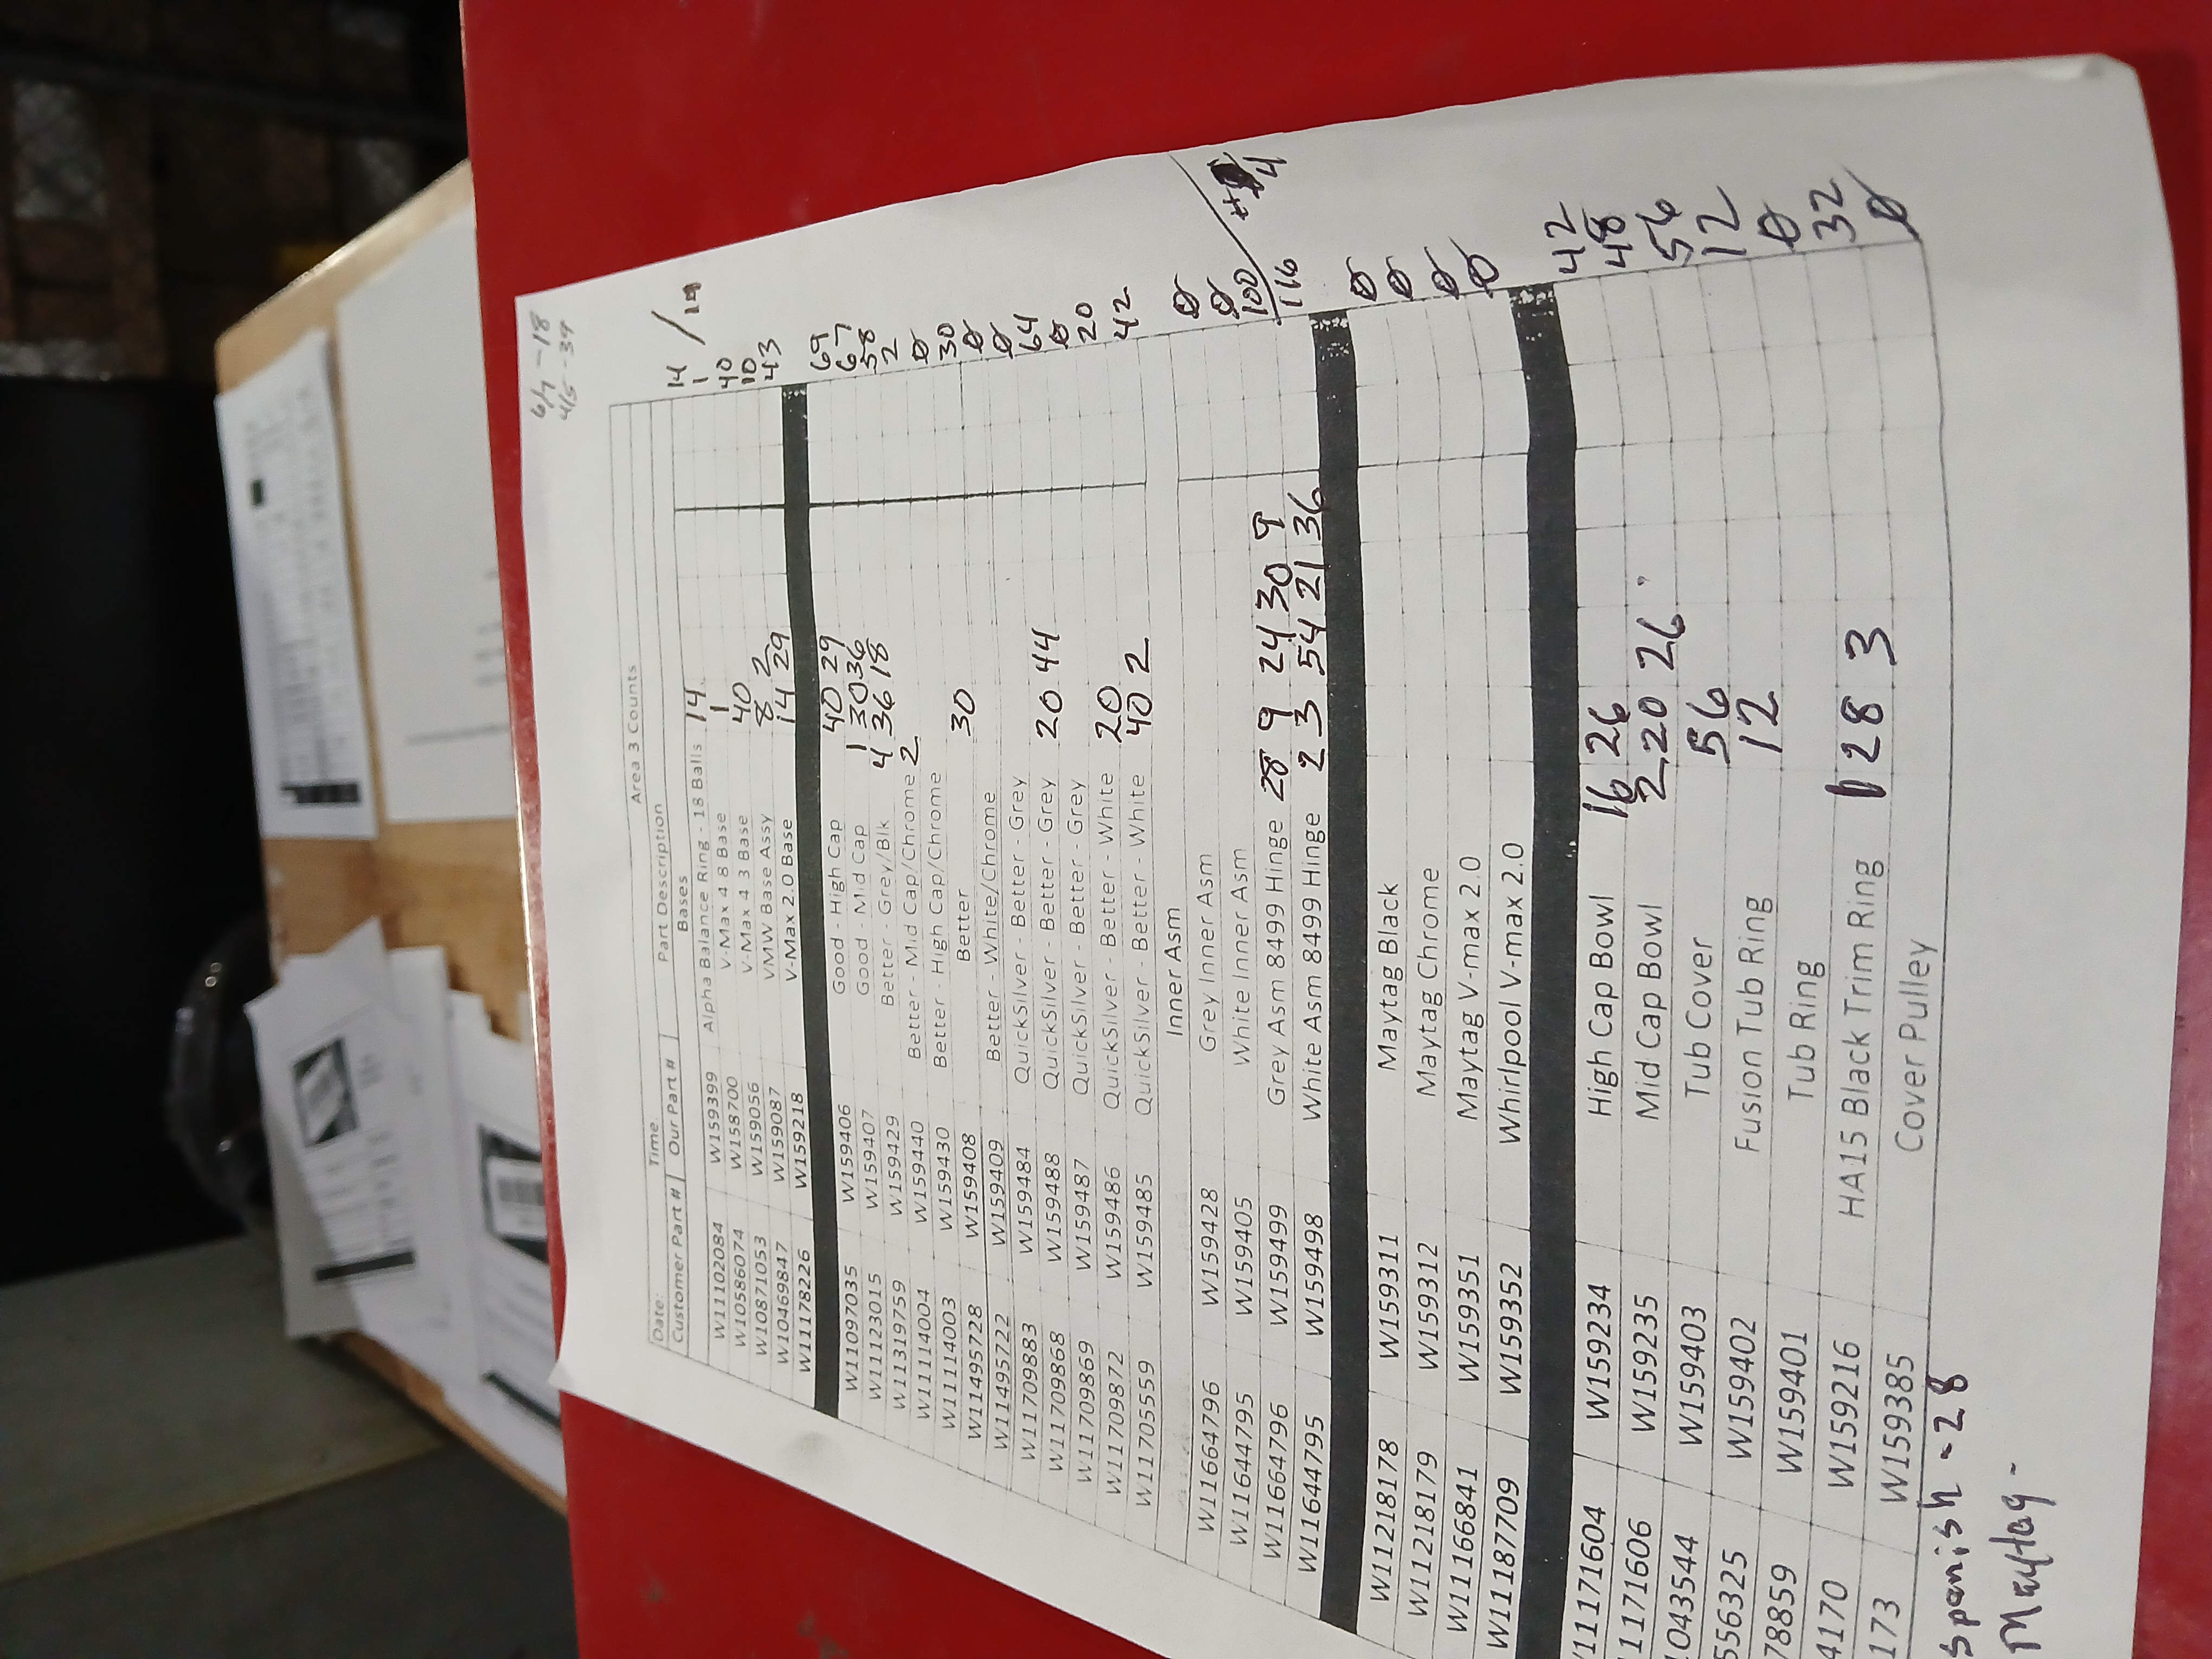 6/7 - 18
4/5 - 39
Area 3 Counts
Date: Time:
Customer Part # Our Part # Part Description
Bases
W11102084 W159399 Alpha Balance Ring - 18 Balls 14 14
W10586074 W158700 V-Max 4 8 Base 1 1
W10871053 W159056 V-Max 4 3 Base 40 40
W10469847 W159087 VMW Base Assy 8 2 10
W11178226 W159218 V-Max 2.0 Base 14 29 43
W11097035 W159406 Good - High Cap 40 29 69
W11123015 W159407 Good - Mid Cap 1 30 36 67
W11319759 W159429 Better - Grey/Blk 4 36 18 58
W11114004 W159440 Better - Mid Cap/Chrome 2 2
W11114003 W159430 Better - High Cap/Chrome Ø
W11495728 W159408 Better 30 30
W11495722 W159409 Better - White/Chrome Ø
W11709883 W159484 QuickSilver - Better - Grey Ø
W11709868 W159488 QuickSilver - Better - Grey 20 44 64
W11709869 W159487 QuickSilver - Better - Grey Ø
W11709872 W159486 QuickSilver - Better - White 20 20
W11705559 W159485 QuickSilver - Better - White 40 2 42
Inner Asm
W11664796 W159428 Grey Inner Asm Ø
W11644795 W159405 White Inner Asm Ø
W11664796 W159499 Grey Asm 8499 Hinge 28 9 24 30 9 100
W11644795 W159498 White Asm 8499 Hinge 2 3 54 21 36 116
W11218178 W159311 Maytag Black Ø
W11218179 W159312 Maytag Chrome Ø
W11166841 W159351 Maytag V-max 2.0 Ø
W11187709 W159352 Whirlpool V-max 2.0 Ø
11171604 W159234 High Cap Bowl 16 26 42
1171606 W159235 Mid Cap Bowl 2 20 26 48
043544 W159403 Tub Cover 56 56
556325 W159402 Fusion Tub Ring 12 12
78859 W159401 Tub Ring Ø
4170 W159216 HA15 Black Trim Ring 1 28 3 32
173 W159385 Cover Pulley Ø
Spanish - 28
Maytag -